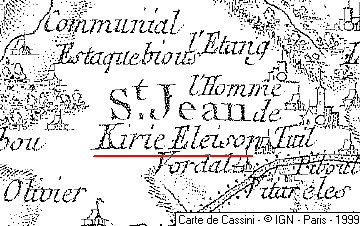 Communial
Estaquebious l'Etang
l'Homme
St. Jean de
bou Kirie Eleison Tuil
Vordal
Olivier Pitareles
Carte de Cassini - © IGN - Paris - 1999